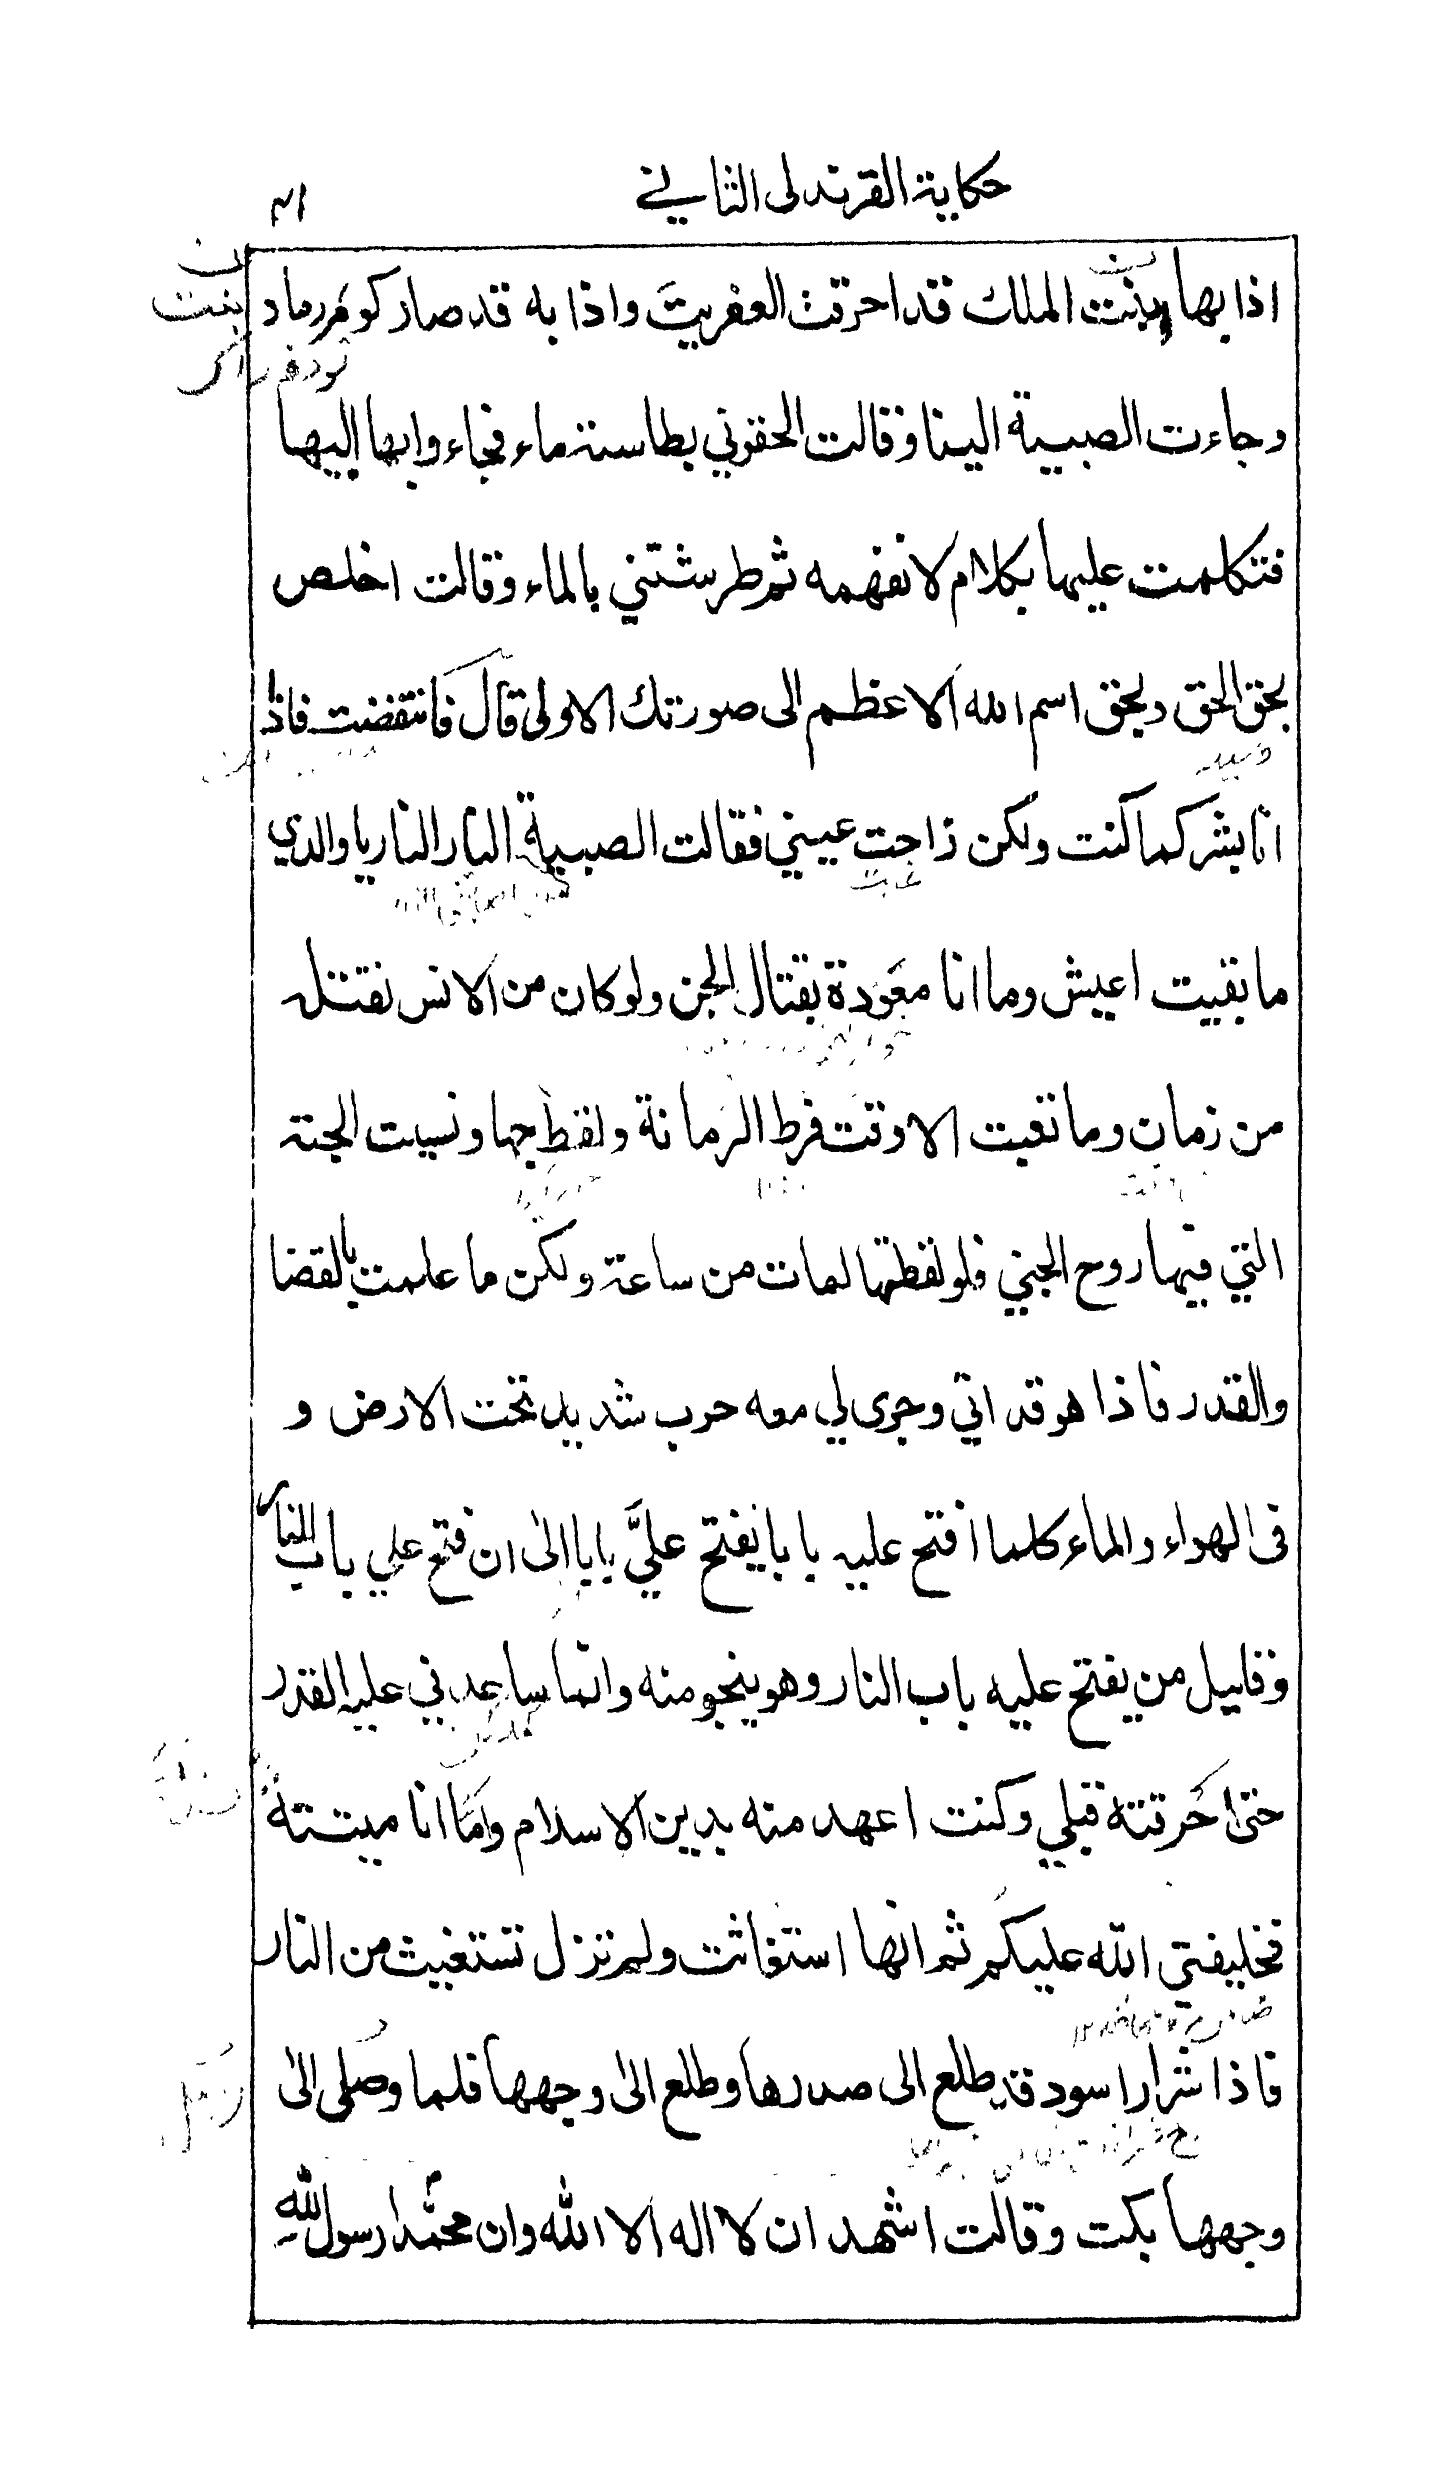 حكاية القرندلى الثاني ٤١
اذا بها بنت الملك قد احرقت العفريت واذا به قد صار كوم رماد
وجاءت الصبية الينا وقالت الحقوني بطاسة ماء فجاءوا بها اليها
فتكلمت عليها بكلام لا نفهمه ثم طرشتني بالماء وقالت اخلص
بحق الحق وبحق اسم الله الاعظم الى صورتك الاولى قال فانتفضت فاذا
انا بشر كما كنت ولكن راحت عيني فقالت الصبية النار النار يا والدي
ما بقيت اعيش وما انا معودة بقتال الجن ولو كان من الانس نقتله
من زمان وما تعبت الا وقت فرط الرمانة ولقط حبها ونسيت الحبة
التي فيها روح الجني فلو لقطتها لمات من ساعة ولكن ما علمت بالقضا
والقدر فاذا هو قد اتى وجرى لي معه حرب شديد تحت الارض و
فى الهواء والماء كلما افتح عليه بابا يفتح عليَّ بابا الى ان فتح علي باب النار
وقليل من يفتح عليه باب النار وهو ينجو منه وانما ساعدني عليه القدر
حتى احرقته قبلي وكنت اعهد منه بدين الاسلام واما انا ميتة
فخليفتي الله عليكم ثم انها استغاثت ولم تزل تستغيث من النار
فاذا شرار اسود قد طلع الى صدرها وطلع الى وجهها فلما وصل الى
وجهها بكت وقالت اشهد ان لا اله الا الله وان محمّدا رسول الله
بنت